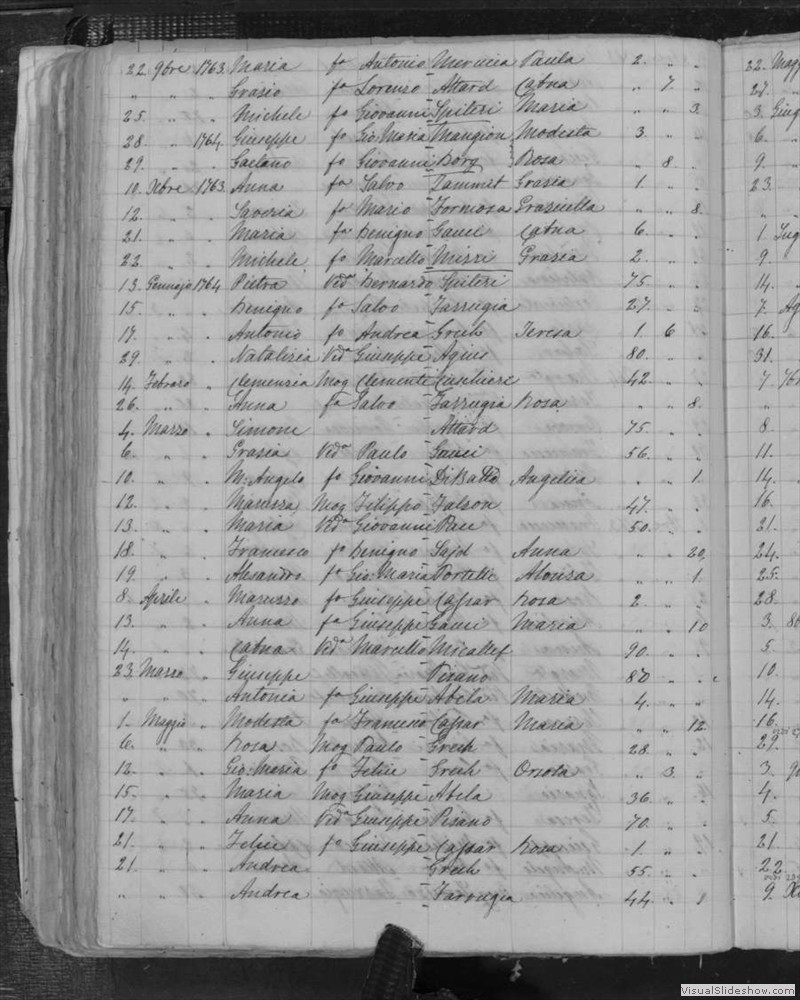 22. 9bre 1763. Maria fa Antonio Mercieca Paula 2. " "
" " " Grasio fo Lorenzo Attard Catna " 7. "
25. " " Michele fo Giovanni Spiteri Maria " " 3.
28. " 1764. Giuseppe fo Gio: Maria Mangion Modesta 3. " "
29. " " Gaetano fo Giovanni Borg Rosa " 8. "
10. Xbre 1763. Anna fa Salvo Tammit Grasia 1. " "
12. " " Saveria fa Mario Formosa Graziulla " " 8.
21. " " Maria fa Benigno Gauci Catna 6. " "
22. " " Michele fo Marcello Mizzi Grasia 2. " "
13. Gennajo 1764 Pietra Veda Bernardo Spiteri 75. " "
15. " " Benigno fo Salvo Farrugia 27. " "
17. " " Antonio fo Andrea Grech Teresa 1. 6 "
29. " " Natalizia Veda Giuseppe Agius 80. " "
14. Febraro " Clemenzia Mog Clemente 42. " "
26. " " Anna fa Salvo Farrugia Rosa " " 8.
4. Marzo " Simone Attard 75. " "
6. " " Grasia Veda Paulo Gauci 56. " "
10. " " M. Angelo fo Giovanni Di Battā Angelica " " 1.
12. " " Maruzza Mog Filippo Falson 47. " "
13. " " Maria Veda Giovanni Pace 50. " "
18. " " Francesco fo Benigno Sajd Anna " " 20.
19. " " Alesandro fo Gio: Maria Portelli Aloisea " " 1.
8. Aprile " Maruzzo fo Giuseppe Caspar Rosa 2. " "
13. " " Anna fa Giuseppe Gauci Maria " " 10
14. " " Catna Veda Marcello Micallef 90. " "
23. Marzo " Giuseppe Pisano 80 " "
" " " Antonia fa Giuseppe Abela Maria 4. " "
1. Maggio " Modesta fa Francesco Caspar Maria " " 12.
6. " " Rosa Mog Paulo Grech 28. " "
12. " " Gio: Maria fo Felice Grech Orsola " 3. "
15. " " Maria Mog Giuseppe Abela 36. " "
17. " " Anna Veda Giuseppe Pisano 70. " "
21. " " Felice fo Giuseppe Caspar Rosa 1. " "
21. " " Andrea Grech 55. " "
" " " Andrea Farrugia 44. " 1
22. Magg
27. "
3. Giug
6. "
9. "
23. "
" "
1. Lug
9. "
14. "
7. Ag
16. "
31.
7. 7b
"
8.
11.
14.
16.
21.
24.
25.
28.
3. 8b
5.
10.
14.
16.
29.
3. 9b
4.
5.
21
22
9. Xb
VisualSlideshow.com